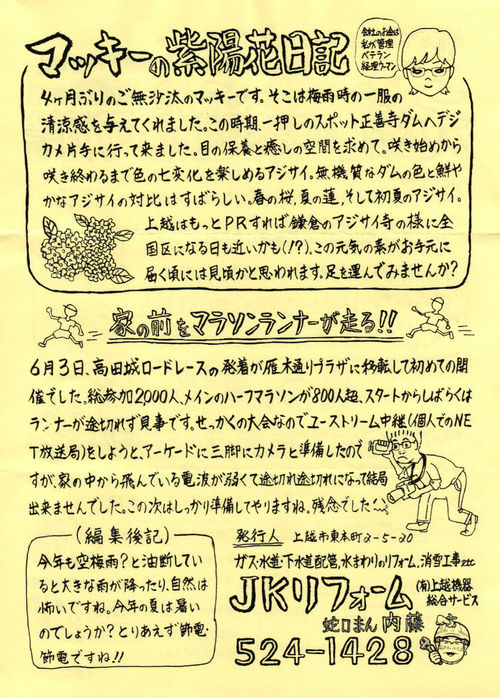 マッキーの紫陽花日記
会社のお金は
私が管理
ベテラン
経理ウーマン
4ヶ月ぶりのご無沙汰のマッキーです。そこは梅雨時の一服の
清涼感を与えてくれました。この時期、一押しのスポット正善寺ダムへデジ
カメ片手に行って来ました。目の保養と癒しの空間を求めて。咲き始めから
咲き終わるまで色の七変化を楽しめるアジサイ。無機質なダムの色と鮮や
かなアジサイの対比はすばらしい。春の桜、夏の蓮、そして初夏のアジサイ。
上越はもっとPRすれば鎌倉のアジサイ寺の様に全
国区になる日も近いかも(!?)、この元気の素がお手元に
届く頃には見頃かと思われます。足を運んでみませんか?
家の前をマラソンランナーが走る!!
6月3日、高田城ロードレースの発着が雁木通りプラザに移転して初めての開
催でした。総参加2,000人、メインのハーフマラソンが800人超、スタートからしばらくは
ランナーが途切れず見事です。せっかくの大会なのでユーストリーム中継(個人でのNE
T放送局)をしようと、アーケードに三脚にカメラと準備したので
すが、家の中から飛んでいる電波が弱くて途切れ途切れになって結局
出来ませんでした。この次はしっかり準備してやりますね。残念でした
(編集後記)
今年も空梅雨?と油断してい
ると大きな雨が降ったり、自然は
怖いですね。今年の夏は暑い
のでしょうか?とりあえず節電・
節電ですね!!
発行人 上越市東本町2-5-20
ガス・水道・下水道配管、水まわりのリフォーム、消雪工事etc
JKリフォーム (有)上越機器
総合サービス
蛇口まん 内藤
524-1428